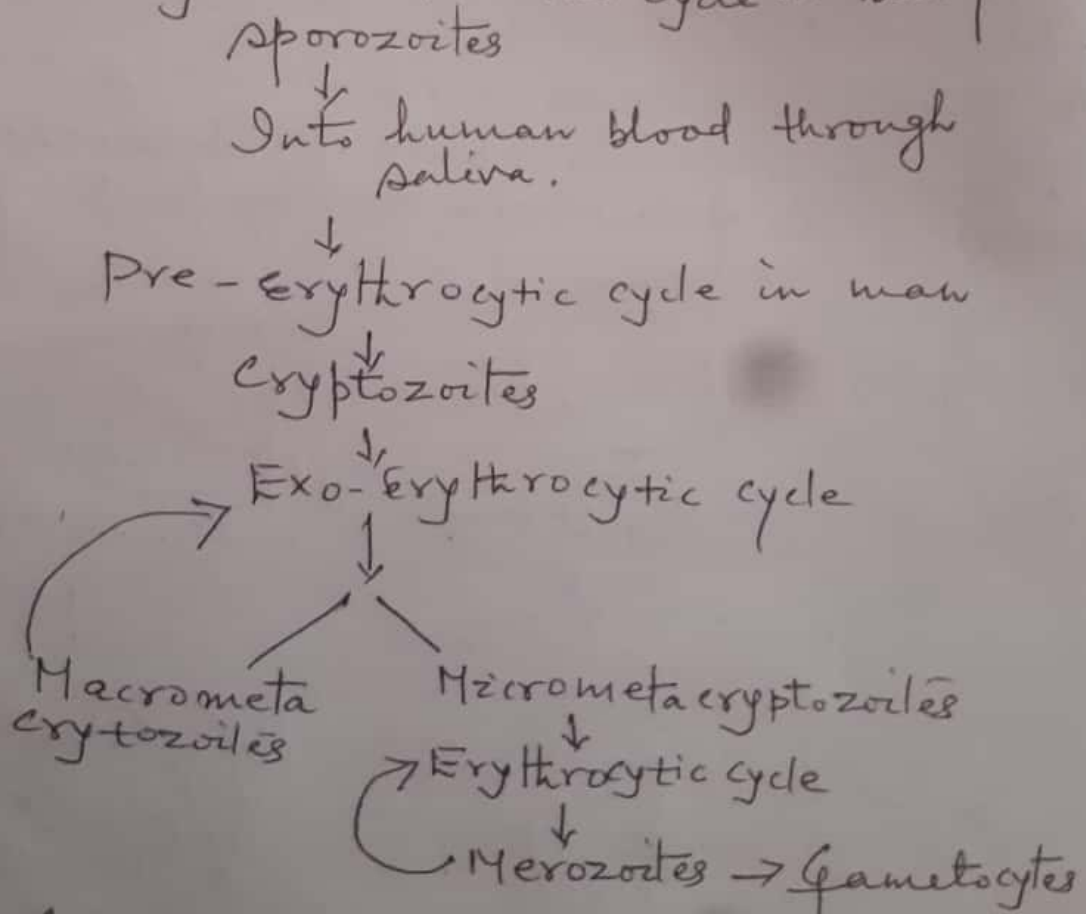 sporozoites
↓
Into human blood through
saliva.
↓
Pre-Erythrocytic cycle in man
↓
Cryptozoites
↓
Exo-Erythrocytic cycle
↓
Macrometa Micrometacryptozoites
crytozoites
↓
Erythrocytic cycle
↓
Merozoites → Gametocytes